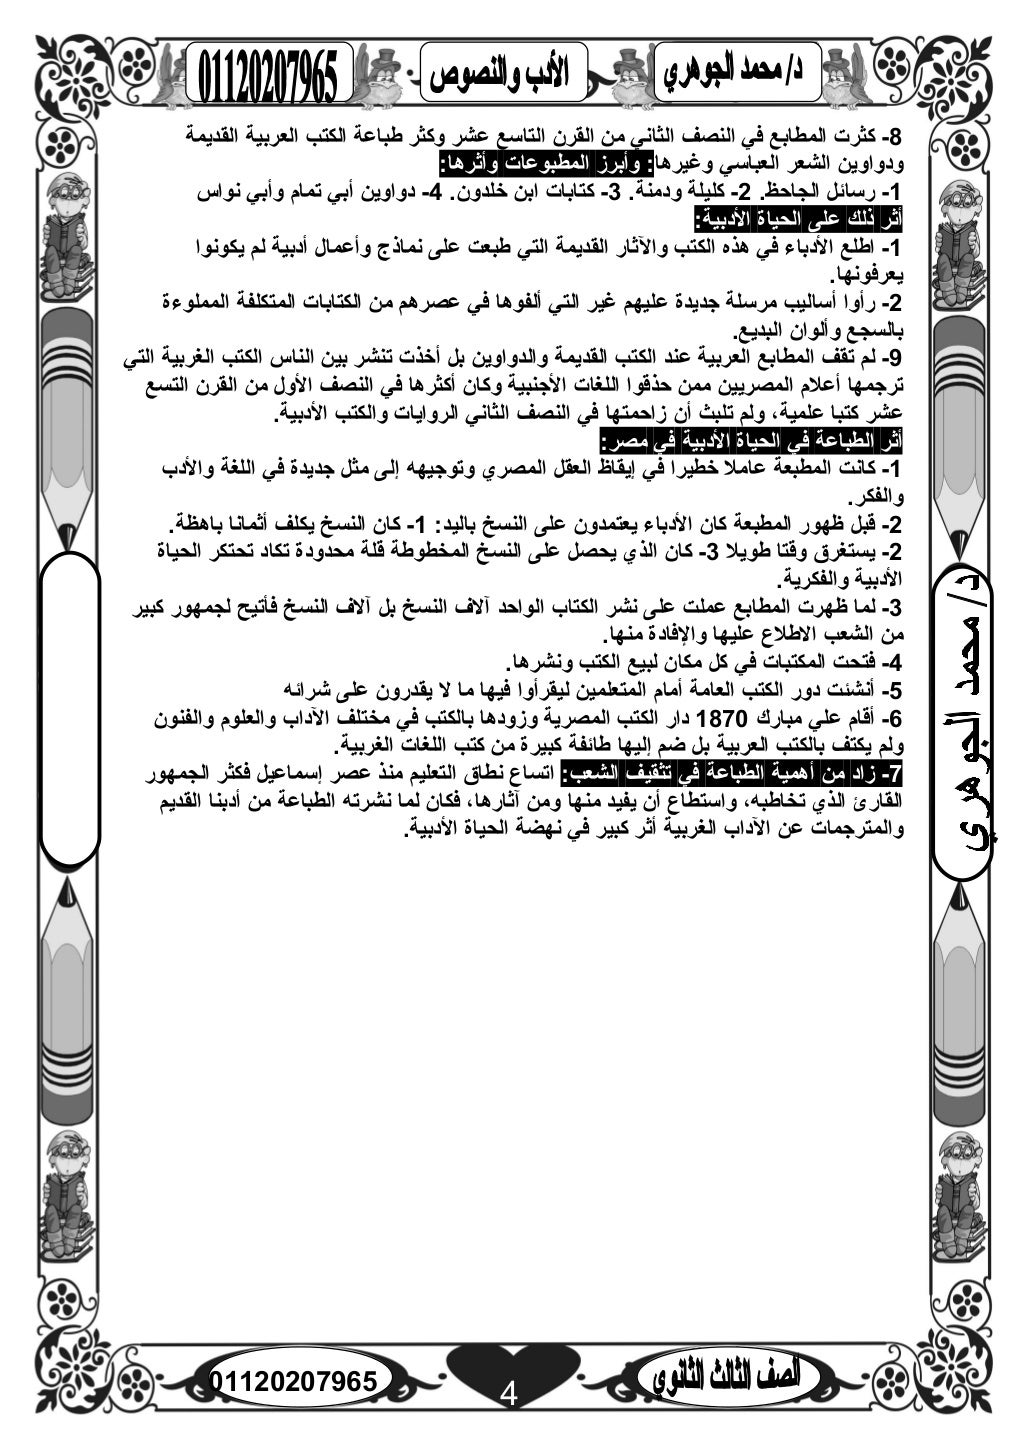 د/ محمد الجوهري
الأدب والنصوص
01120207965
8- كثرت المطابع في النصف الثاني من القرن التاسع عشر وكثر طباعة الكتب العربية القديمة
ودواوين الشعر العباسي وغيرها: وأبرز المطبوعات وأثرها:
1- رسائل الجاحظ. 2- كليلة ودمنة. 3- كتابات ابن خلدون. 4- دواوين أبي تمام وأبي نواس
أثر ذلك على الحياة الأدبية:
1- اطلع الأدباء في هذه الكتب والآثار القديمة التي طبعت على نماذج وأعمال أدبية لم يكونوا
يعرفونها.
2- رأوا أساليب مرسلة جديدة عليهم غير التي ألفوها في عصرهم من الكتابات المتكلفة المملوءة
بالسجع وألوان البديع.
9- لم تقف المطابع العربية عند الكتب القديمة والدواوين بل أخذت تنشر بين الناس الكتب الغربية التي
ترجمها أعلام المصريين ممن حذقوا اللغات الأجنبية وكان أكثرها في النصف الأول من القرن التسع
عشر كتبا علمية، ولم تلبث أن زاحمتها في النصف الثاني الروايات والكتب الأدبية.
أثر الطباعة في الحياة الأدبية في مصر:
1- كانت المطبعة عاملا خطيرا في إيقاظ العقل المصري وتوجيهه إلى مثل جديدة في اللغة والأدب
والفكر.
2- قبل ظهور المطبعة كان الأدباء يعتمدون على النسخ باليد: 1- كان النسخ يكلف أثمانا باهظة.
2- يستغرق وقتا طويلا 3- كان الذي يحصل على النسخ المخطوطة قلة محدودة تكاد تحتكر الحياة
الأدبية والفكرية.
3- لما ظهرت المطابع عملت على نشر الكتاب الواحد آلاف النسخ بل آلاف النسخ فأتيح لجمهور كبير
من الشعب الاطلاع عليها والإفادة منها.
4- فتحت المكتبات في كل مكان لبيع الكتب ونشرها.
5- أنشئت دور الكتب العامة أمام المتعلمين ليقرأوا فيها ما لا يقدرون على شرائه
6- أقام علي مبارك 1870 دار الكتب المصرية وزودها بالكتب في مختلف الآداب والعلوم والفنون
ولم يكتف بالكتب العربية بل ضم إليها طائفة كبيرة من كتب اللغات الغربية.
7- زاد من أهمية الطباعة في تثقيف الشعب: اتساع نطاق التعليم منذ عصر إسماعيل فكثر الجمهور
القارئ الذي تخاطبه، واستطاع أن يفيد منها ومن آثارها، فكان لما نشرته الطباعة من أدبنا القديم
والمترجمات عن الآداب الغربية أثر كبير في نهضة الحياة الأدبية.
د/ محمد الجوهري
الصف الثالث الثانوي
4
01120207965